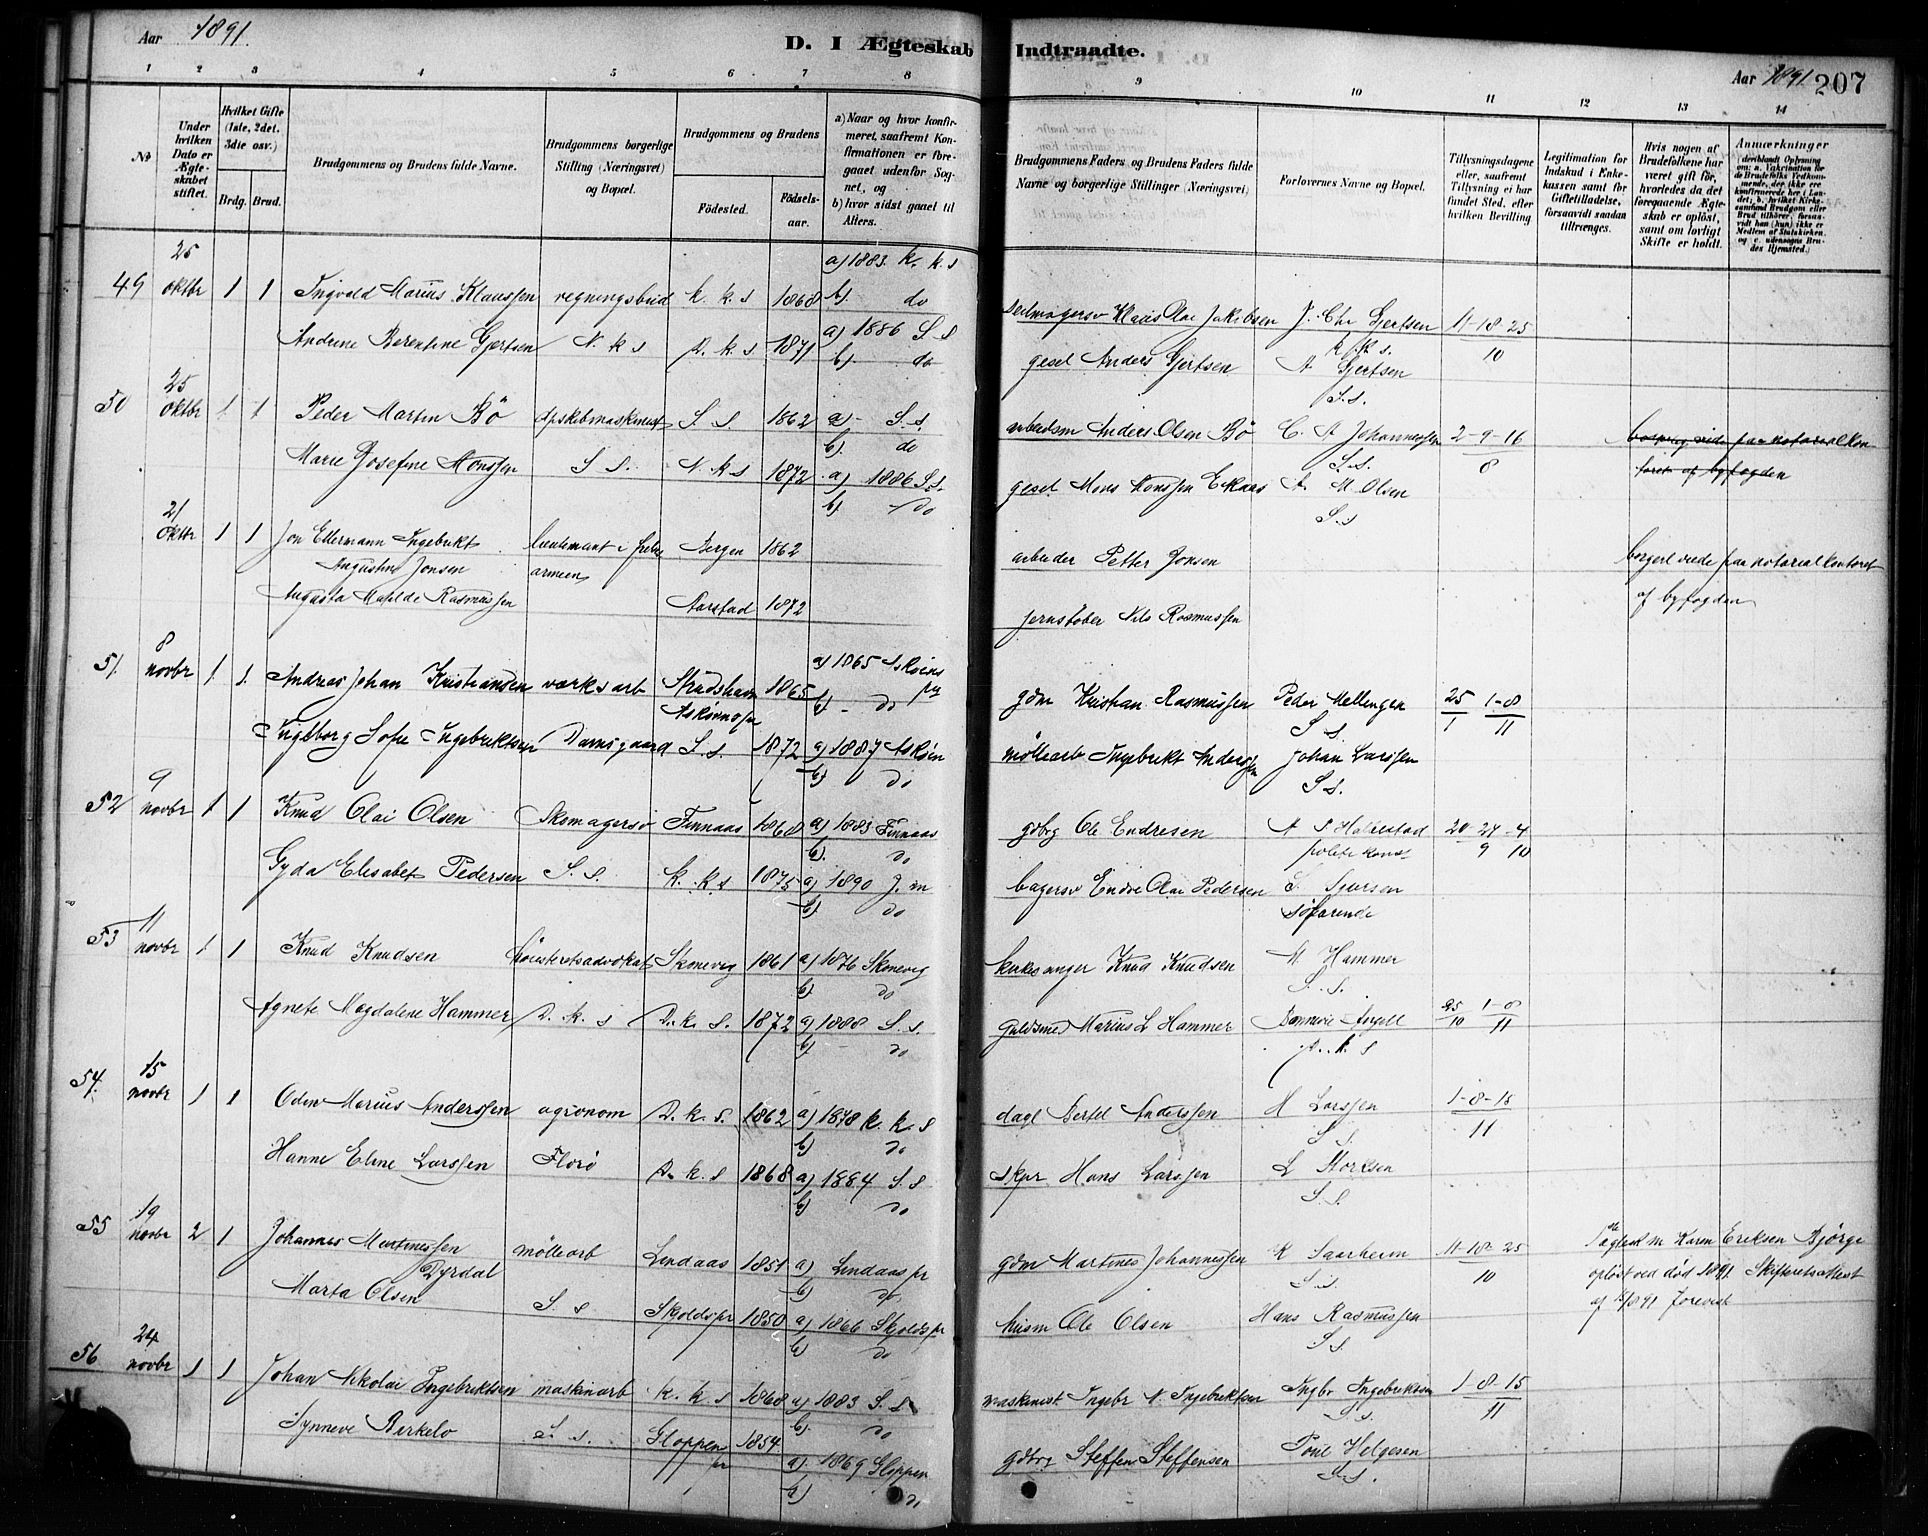 Aar 1891.
D. I Ægteskab Indtraadte.
Aar 1891 207
1 2 3 4 5 6 7 8 9 10 11 12 13 14
No
Under hvilken Dato er Ægteskabet stiftet.
Hvilket Gifte (1ste, 2det, 3die osv.)
Brdg. Brud.
Brudgommens og Brudens fulde Navne.
Brudgommens borgerlige Stilling (Næringsvei) og Bopæl.
Brudgommens og Brudens
Fødested.
Fødselsaar.
a) Naar og hvor konfirmeret, saafremt Konfirmationen er foregaaet udenfor Sognet, og
b) hvor sidst gaaet til Alters.
Brudgommens Faders og Brudens Faders fulde Navne og borgerlige Stillinger (Næringsvei)
Forlovernes Navne og Bopæl.
Tillysningsdagene eller, saafremt Tillysning ei har fundet Sted, efter hvilken Bevilling
Legitimation for Indskud i Enkekassen samt for Giftetilladelse, forsaavidt saadan tiltrænges.
Hvis nogen af Brudefolkene har været gift før, hvorledes da det foregaaende Ægteskab er opløst, samt om lovligt Skifte er holdt.
Anmærkninger
49 25 oktbr 1 1 Ingvald Marius Klaussen regningsbud k. k. s 1868 a) 1883 k. k. s b) do
Klaus Olai Jakobsen J. Chr Gjertsen 11-18-25
k k s. 10
Andrine Berentine Gjertsen N. k s D. k. s 1871 a) 1886 S s b) do
gesel Anders Gjertsen A Gjertsen
S.s.
50 25 oktbr 1 1 Peder Martin Bö S. s. 1862 a) - S.s. b) do
arbeidsm Anders Olsen Bö C. A Johannessen 2-9-16
S.s. 8
Marie Josefine Monssen S s. N. k s 1872 a) 1886 S.s. b) do
gesel Mons Monssen A M Olsen
S.s
21 oktbr 1 1 Jon Ellermann Ingebrikt Augustin Jonsen Bergen 1862
armeen
arbeider Petter Jonsen
borgerl viede paa notarialkontoret af byfogden
Augusta Matilde Rasmussen Aarstad 1872
jernstöber Nils Rasmussen
51. 8 novbr 1. 1. Andreas Johan Kristiansen værksarb 1865 a) 1865 b) - do
gdm Kristian Rasmussen Peder Mellingen 25/1 1-8/11
S s
Ingeborg Sofie Ingebriktsen Damsgaard S. s. 1872 a) 1887 Asköen b) do
möllearb Ingebrikt Anderssen Johan Larssen
S s.
52 9 novbr 1 1 Knud Olai Olsen Skomagersv Finnaas 1868 a) 1883 Finnaas b) do
gdbrg Ole Endresen 20-27-4
9 10
Gyda Elisabet Pedersen S. s. k. k. s 1875 a) 1890 J. m b) do
bagersv Endre Olai Pedersen
söfarende
53 11 novbr 1 1 Knud Knudsen höiesteretsadvokat Skonevig 1861 a) 1876 Skonevig b) do
kirkesanger Knud Knudsen M Hammer
S. s.
Agnete Magdalene Hammer D. k. s D. k. s. 1872 a) 1888 S. s b) - do
guldsmed Marius L Hammer 25/10 1-8/11
54. 15 novbr 1 1 Oden Marius Anderssen agronom D. k. s. 1862 a) 1878 k. k. s b) do
dagl Anderssen H Larssen 1-8-15
S s. 11
Hanne Eline Larssen Florö D. k. s 1868 a) 1884 S. s b) do
skpr Hans Larssen L Storksen
S s
55 19 novbr 2 1 Johannes Martinessen Dyrdal möllearb Lindaas 1851 a) Lindaas pr b) do
gdm Martines Johannessen K Saarheim 11-18-25
S s. 10
ægtesk m Karen Eriksen Bjørge
opløst ved død 1891 Skifterets Attest
af 15/8 91 forevist
Marta Olsen S. s Skoldspr 1850 a) 1866 Skoldspr b) do
husm Ole Olsen Hans Rasmussen
S s
56 24 novbr 1 1 Johan Nikolai Ingebriktsen maskinarb k. k. s 1868 a) 1883 S. s b) do
maskinist Ingebr N. Ingebriktsen Ingbr Ingebriktsen 1-8-15
S. s. 11
Synneve Birkelo S. s. Gloppen pr 1854 a) 1869 Gloppen b) do
gdbrg Steffen Steffensen Poul Helgesen
S. s.